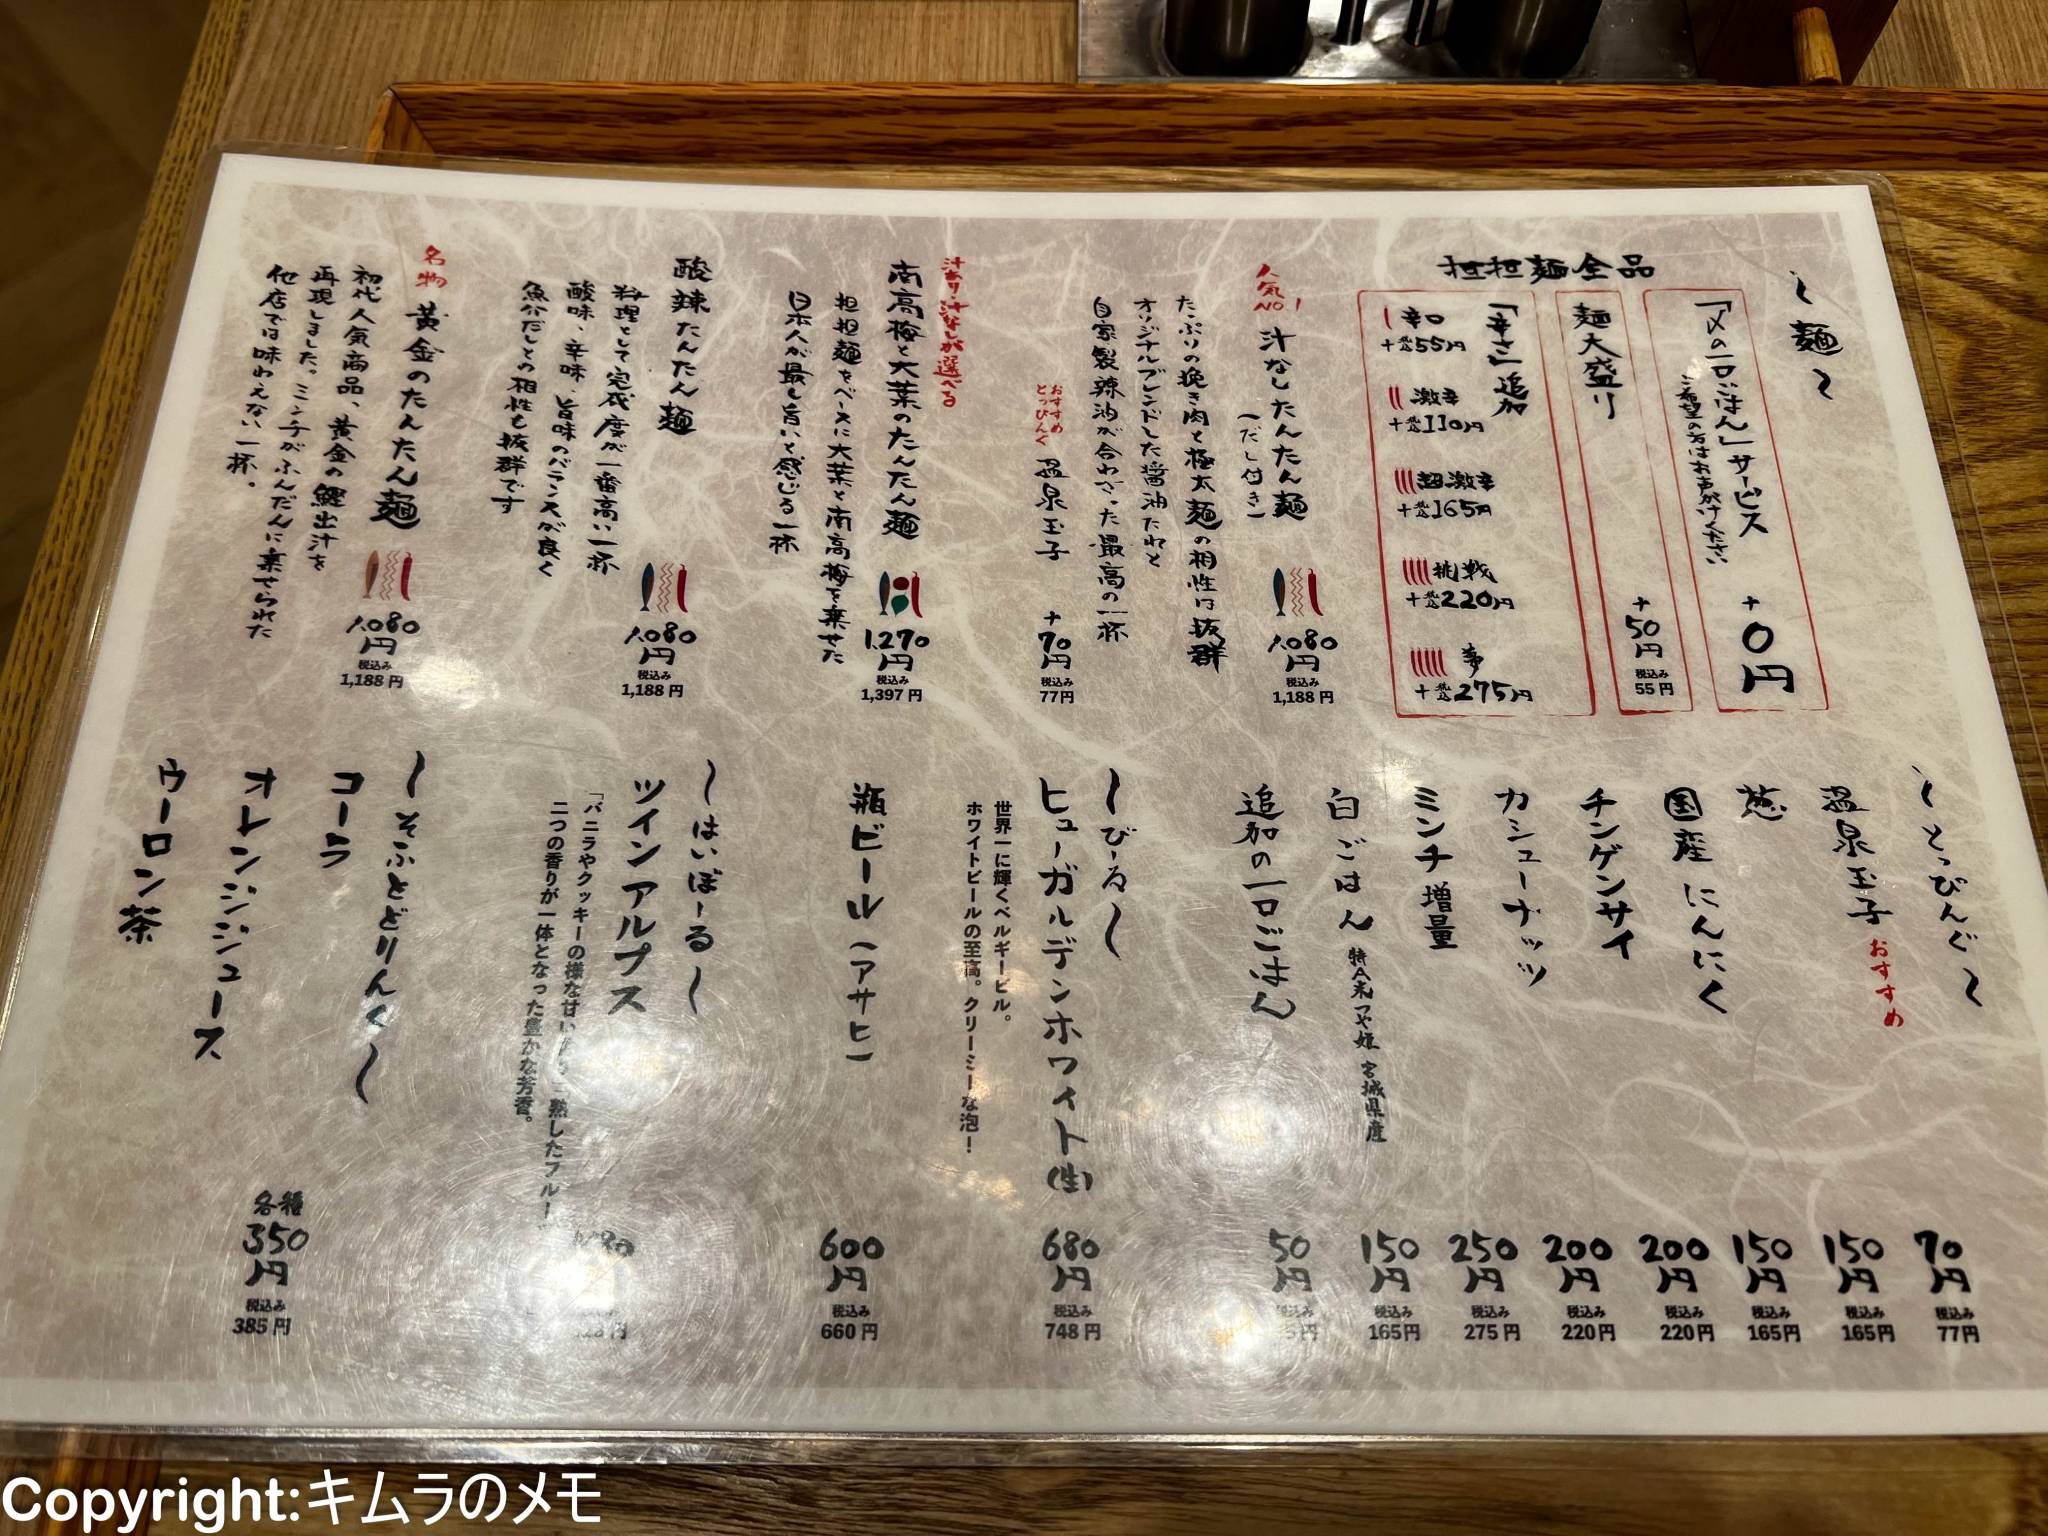 〜麺〜
担担麺全品
「〆の一口ごはん」サービス
ご希望の方はお声がけください
+0円
麺大盛り
+50円
税込み
55円
「辛さ」追加
辛口
+税込55円
激辛
+税込110円
超激辛
+税込165円
挑戦
+税込220円
夢
+税込275円
人気NO.1
汁なしたんたん麺
(だし付き)
たっぷりの挽き肉と極太麺の相性は抜群
オリジナルブレンドした醤油たれと
自家製辣油が合わさった最高の一杯
1,080円
税込み
1,188円
おすすめ
とっぴんぐ
温泉玉子
+70円
税込み
77円
汁あり・汁なしが選べる
南高梅と大葉のたんたん麺
担担麺をベースに大葉と南高梅を乗せた
日本人が最し旨いと感じる一杯
1,270円
税込み
1,397円
酸辣たんたん麺
料理として完成度が一番高い一杯
酸味、辛味、旨味のバランスが良く
魚介だしとの相性も抜群です
1,080円
税込み
1,188円
名物
黄金のたんたん麺
初代人気商品、黄金の鰹出汁を
再現しました。ミンチがふんだんに乗せられた
他店では味わえない一杯。
1,080円
税込み
1,188円
〜とっぴんぐ〜
温泉玉子 おすすめ
70円
税込み
77円
葱
150円
税込み
165円
国産にんにく
150円
税込み
165円
チンゲンサイ
200円
税込み
220円
カシューナッツ
200円
税込み
220円
ミンチ増量
250円
税込み
275円
白ごはん 特A米つや姫 宮城県産
150円
税込み
165円
追加の一口ごはん
50円
税込み
〜びーる〜
ヒューガルデンホワイト(生)
世界一に輝くベルギービール。
ホワイトビールの至高。クリーミーな泡!
680円
税込み
748円
瓶ビール(アサヒ)
600円
税込み
660円
〜はいぼーる〜
ツインアルプス
「バニラやクッキーの様な甘い
熟したフルー
二つの香りが一体となった豊かな芳香。
〜そふとどりんく〜
コーラ
オレンジジュース
ウーロン茶
各種
350円
税込み
385円
Copyright:キムラのメモ